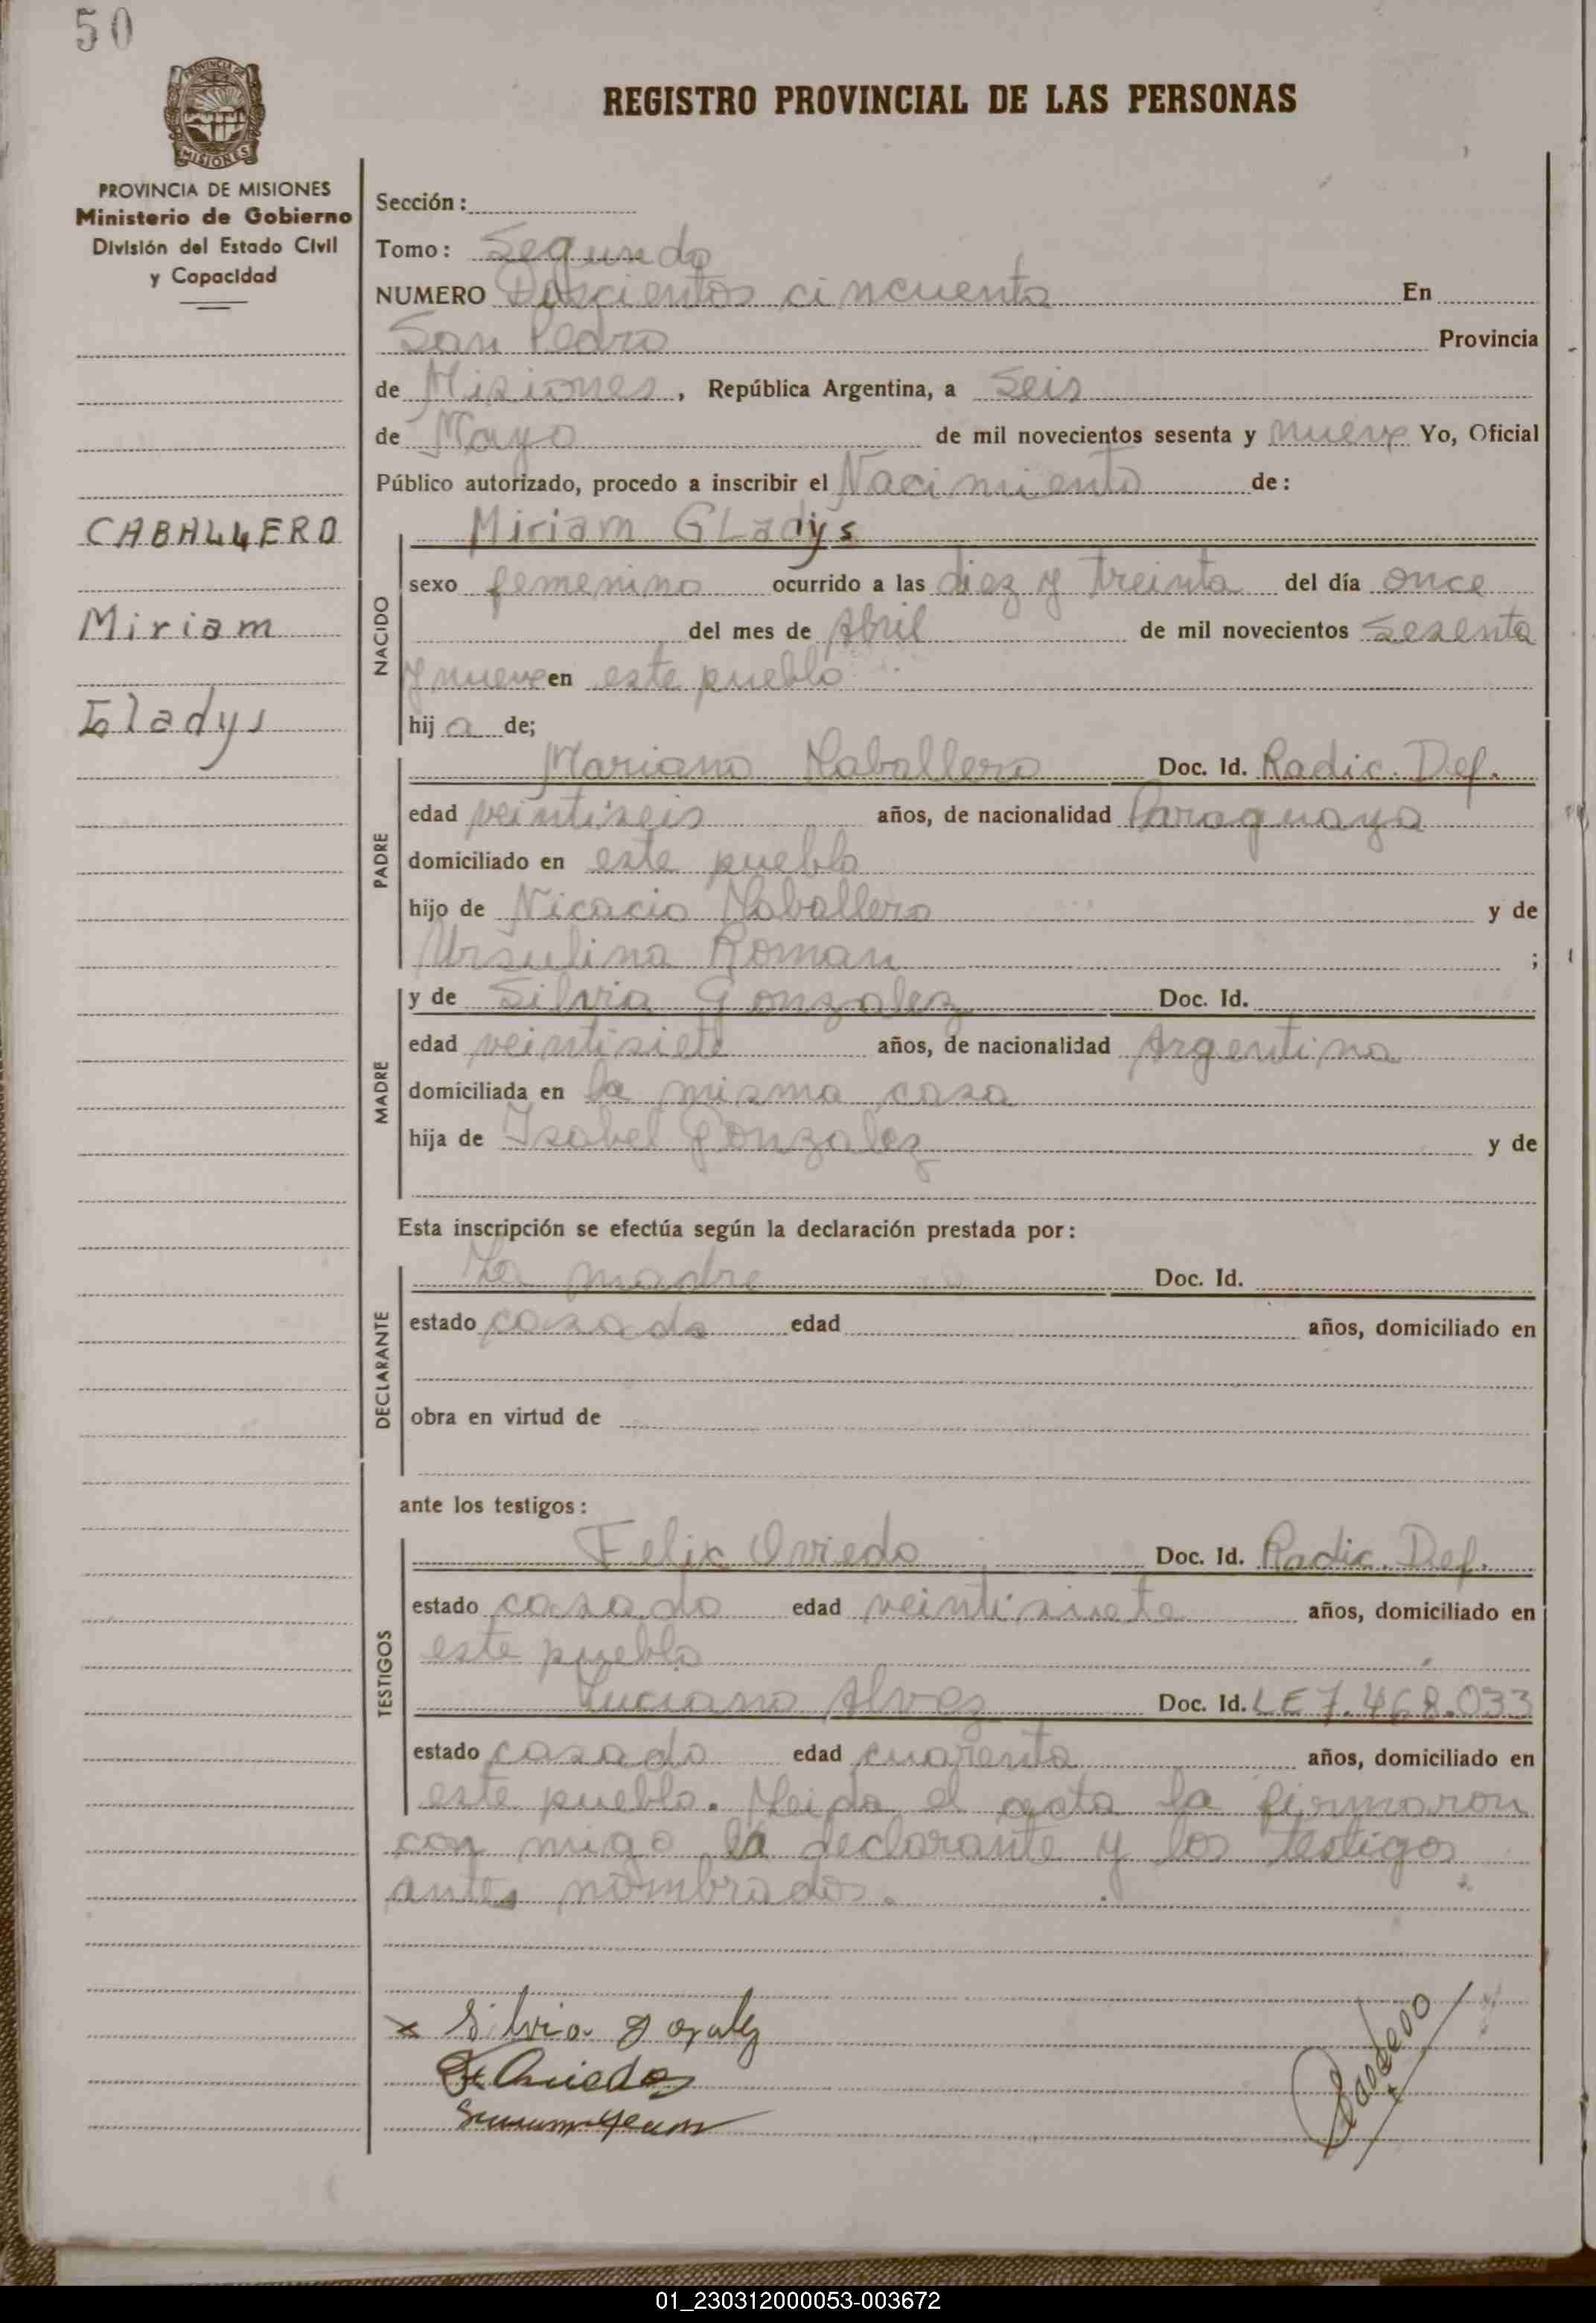 50
PROVINCIA DE
MISIONES
REGISTRO PROVINCIAL DE LAS PERSONAS
PROVINCIA DE MISIONES
Ministerio de Gobierno
División del Estado Civil
y Capacidad
CABALLERO
Miriam
Gladys
Sección:
Tomo: Segundo
NUMERO Doscientos cincuenta En
San Pedro Provincia
de Misiones, República Argentina, a Seis
de Mayo de mil novecientos sesenta y nueve Yo, Oficial
Público autorizado, procedo a inscribir el Nacimiento de:
Miriam GLadys
NACIDO
sexo femenino ocurrido a las diez y treinta del día once
del mes de Abril de mil novecientos Sesenta
y nueve en este pueblo
hija de;
PADRE
Mariano Caballero Doc. Id. Radic. Def.
edad veintiseis años, de nacionalidad Paraguaya
domiciliado en este pueblo
hijo de Nicacio Caballero y de
Ursulina Roman ;
MADRE
y de Silvia Gonzalez Doc. Id.
edad veintisiete años, de nacionalidad Argentina
domiciliada en la misma casa
hija de Isabel Gonzalez y de
Esta inscripción se efectúa según la declaración prestada por:
DECLARANTE
La madre Doc. Id.
estado casada edad años, domiciliado en
obra en virtud de
ante los testigos:
TESTIGOS
Felix Oviedo Doc. Id. Radic. Def.
estado casado edad veintisiete años, domiciliado en
este pueblo
Luciano Alvez Doc. Id. LE 7.468.033
estado casado edad cuarenta años, domiciliado en
este pueblo. Leida el acta la firmaron
con migo la declarante y los testigos
antes nombrados.
x Silvia Gozalez
Oviedo
01_230312000053-003672